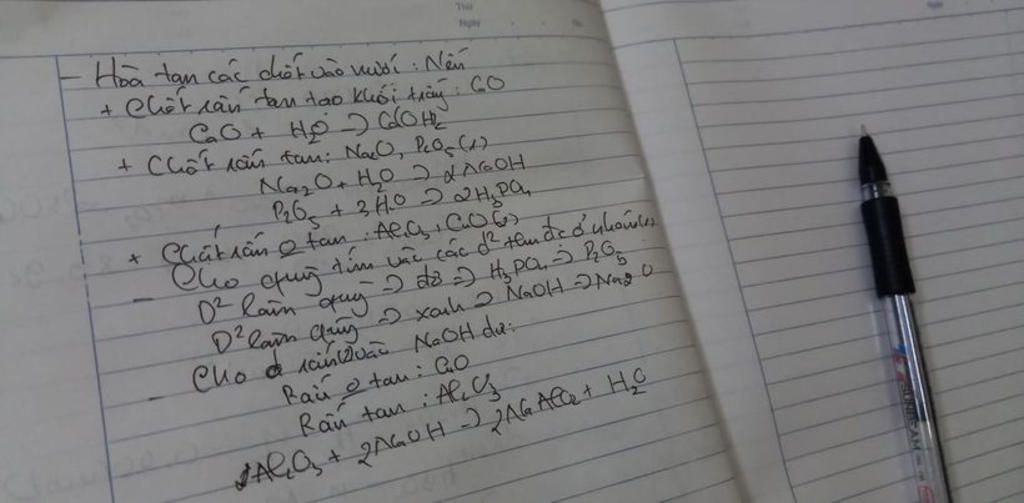 Thứ
Ngày No.
- Hoà tan các chất vào nước: Nếu
+ Chất rắn tan tạo khối trắng: CaO
CaO + H₂O → Ca(OH)₂
+ Chất rắn tan: Na₂O, P₂O₅ (1)
Na₂O + H₂O → 2NaOH
P₂O₅ + 3H₂O → 2H₃PO₄
+ Chất rắn ⊖ tan: Al₂O₃, (2)
- Cho quỳ tím vào các d² trên đc ở nhóm (1)
D² làm quỳ → đỏ → H₃PO₄ → P₂O₅
D² làm quỳ → xanh → NaOH → Na₂O
- Cho rắn (2) vào NaOH dư:
Rắn ⊖ tan:
Rắn tan: Al₂O₃
Al₂O₃ + 2NaOH → 2NaAlO₂ + H₂O